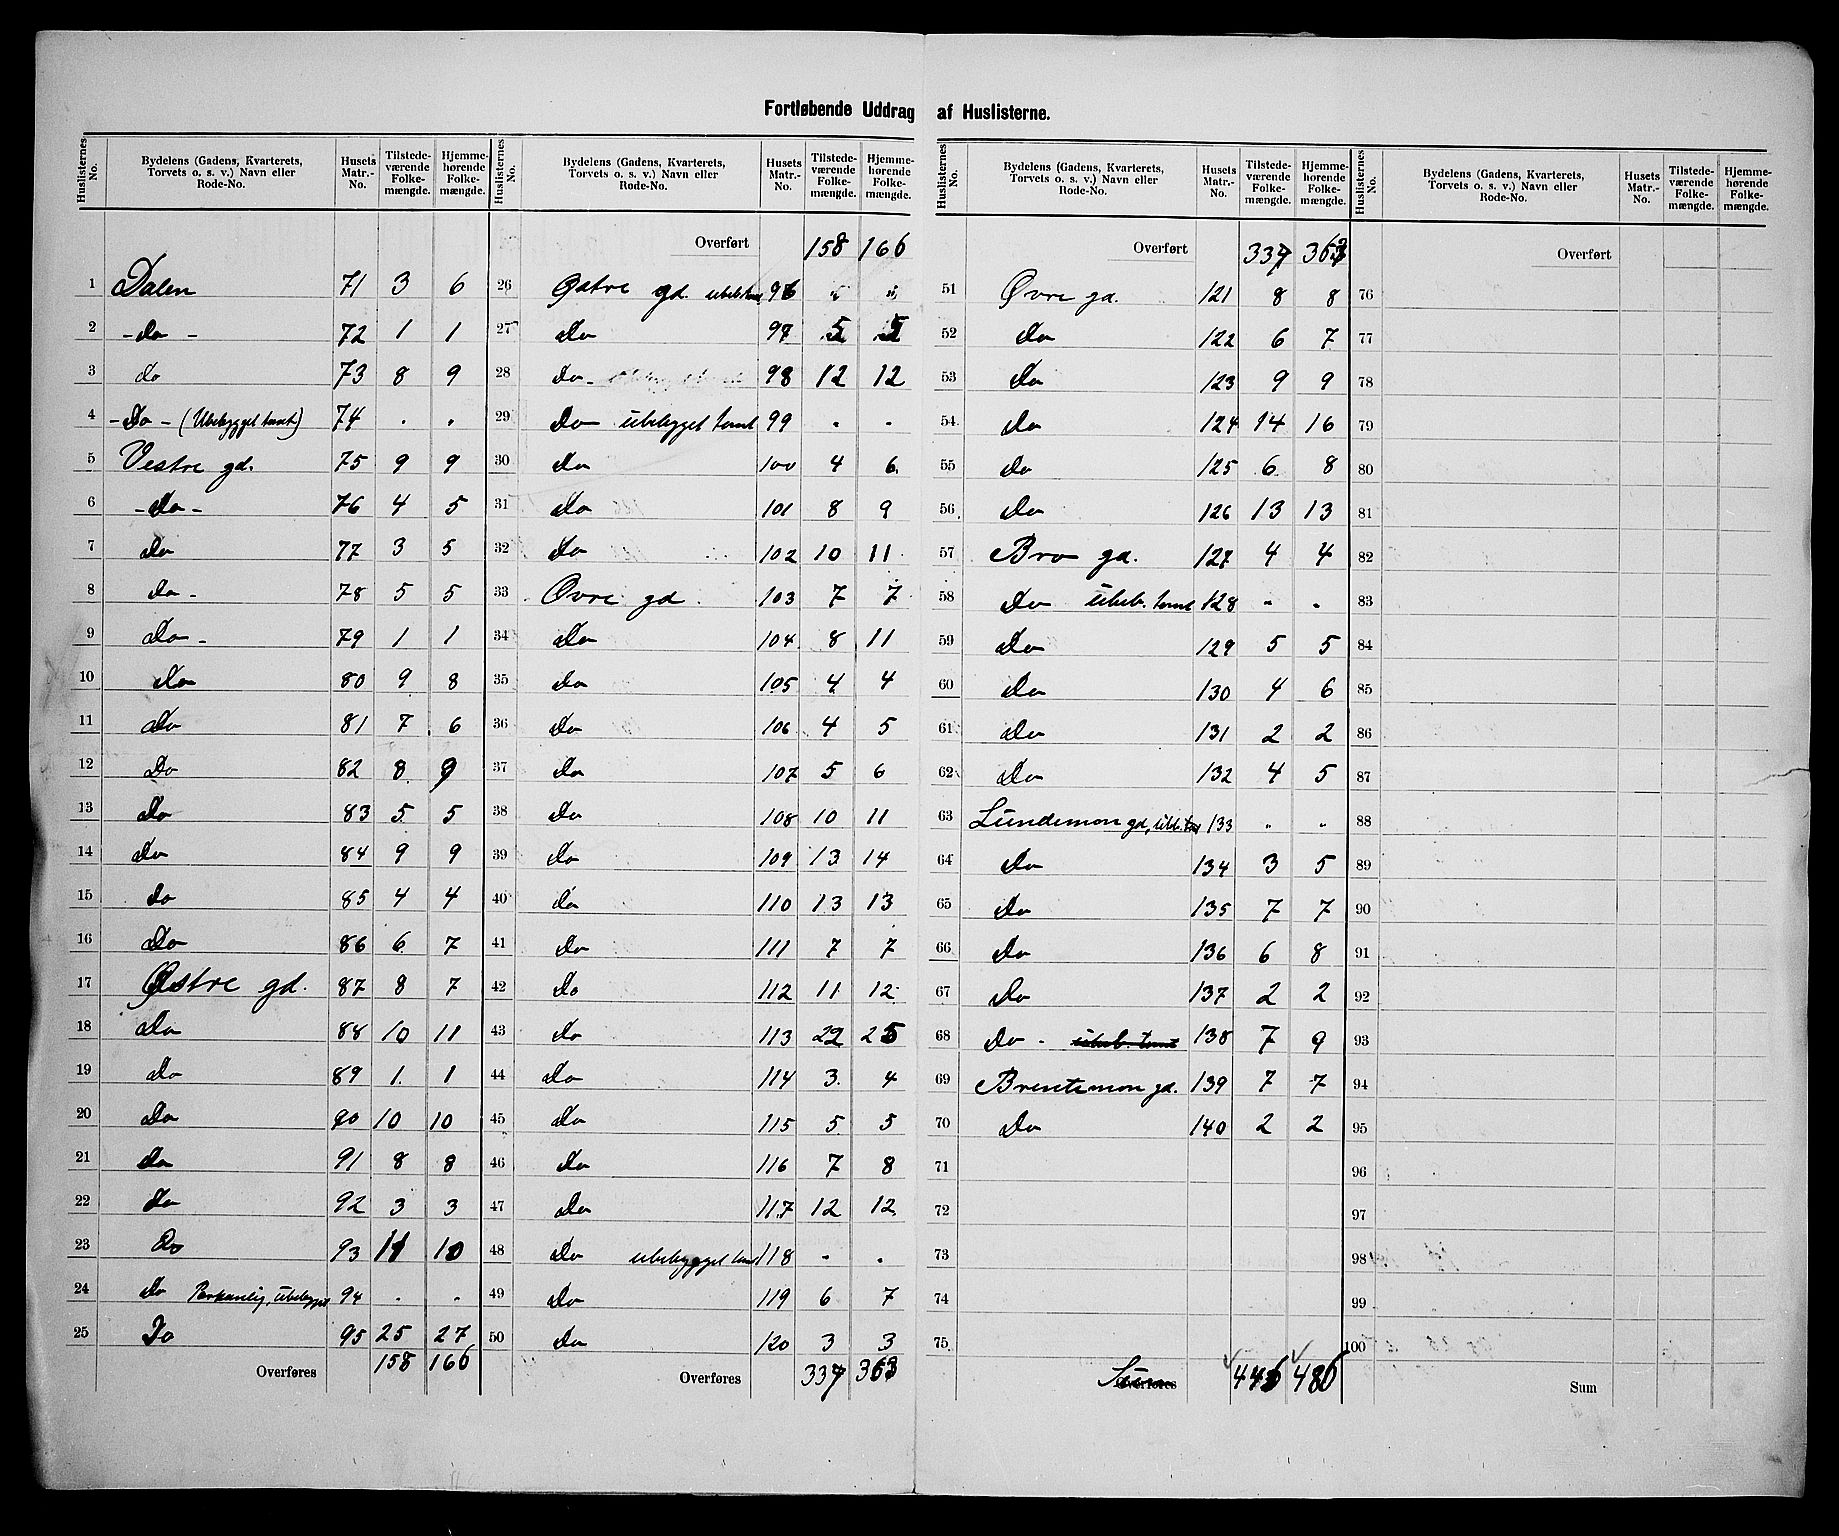 Fortløbende Uddrag af Huslisterne.
Huslisternes No. | Bydelens (Gadens, Kvarterets, Torvets o. s. v.) Navn eller Rode-No. | Husets Matr.-No. | Tilstedeværende Folkemængde. | Hjemmehørende Folkemængde.
1 Dalen 71 3 6
2 - Do - 72 1 1
3 do 73 8 9
4 - Do - (Ubebygget tomt) 74 . .
5 Vestre gd. 75 9 9
6 - Do - 76 4 5
7 Do 77 3 5
8 Do - 78 5 5
9 Do - 79 1 1
10 Do 80 9 8
11 Do 81 7 6
12 Do 82 8 9
13 Do 83 5 5
14 Do 84 9 9
15 Do 85 4 4
16 Do 86 6 7
17 Østre gd. 87 8 7
18 Do 88 10 11
19 Do 89 1 1
20 Do 90 10 10
21 Do 91 8 8
22 Do 92 3 3
23 Do 93 11 10
24 Do Parkanlig, ubebygget 94 . .
25 Do 95 25 27
Overføres 158 166
Huslisternes No. | Bydelens (Gadens, Kvarterets, Torvets o. s. v.) Navn eller Rode-No. | Husets Matr.-No. | Tilstedeværende Folkemængde. | Hjemmehørende Folkemængde.
Overført 158 166
26 Østre gd. ubeb. tomt 96 " "
27 Do 97 5 5
28 Do - 98 12 12
29 Do ubebygget tomt 99 . .
30 Do 100 4 6
31 Do 101 8 9
32 Do 102 10 11
33 Øvre gd. 103 7 7
34 Do 104 8 11
35 Do 105 4 4
36 Do 106 4 5
37 Do 107 5 6
38 Do 108 10 11
39 Do 109 13 14
40 Do 110 13 13
41 Do 111 7 7
42 Do 112 11 12
43 Do 113 22 25
44 Do 114 3 4
45 Do 115 5 5
46 Do 116 7 8
47 Do 117 12 12
48 Do ubebygget tomt 118 . .
49 Do 119 6 7
50 Do 120 3 3
Overføres 337 363
Huslisternes No. | Bydelens (Gadens, Kvarterets, Torvets o. s. v.) Navn eller Rode-No. | Husets Matr.-No. | Tilstedeværende Folkemængde. | Hjemmehørende Folkemængde.
Overført 337 363
51 Øvre gd. 121 8 8
52 Do 122 6 7
53 Do 123 9 9
54 Do 124 14 16
55 Do 125 6 8
56 Do 126 13 13
57 Bro gd. 127 4 4
58 Do ubeb. tomt 128 . .
59 Do 129 5 5
60 Do 130 4 6
61 Do 131 2 2
62 Do 132 4 5
63 Lundemon gd, ubb. tomt 133 " "
64 Do 134 3 5
65 Do 135 7 7
66 Do 136 6 8
67 Do 137 2 2
68 Do - ubeb. tomt 138 7 9
69 Brentemon gd. 139 7 7
70 Do 140 2 2
71
72
73
74
75
Overføres Sum 446 486
Huslisternes No. | Bydelens (Gadens, Kvarterets, Torvets o. s. v.) Navn eller Rode-No. | Husets Matr.-No. | Tilstedeværende Folkemængde. | Hjemmehørende Folkemængde.
Overført
76
77
78
79
80
81
82
83
84
85
86
87
88
89
90
91
92
93
94
95
96
97
98
99
100
Sum